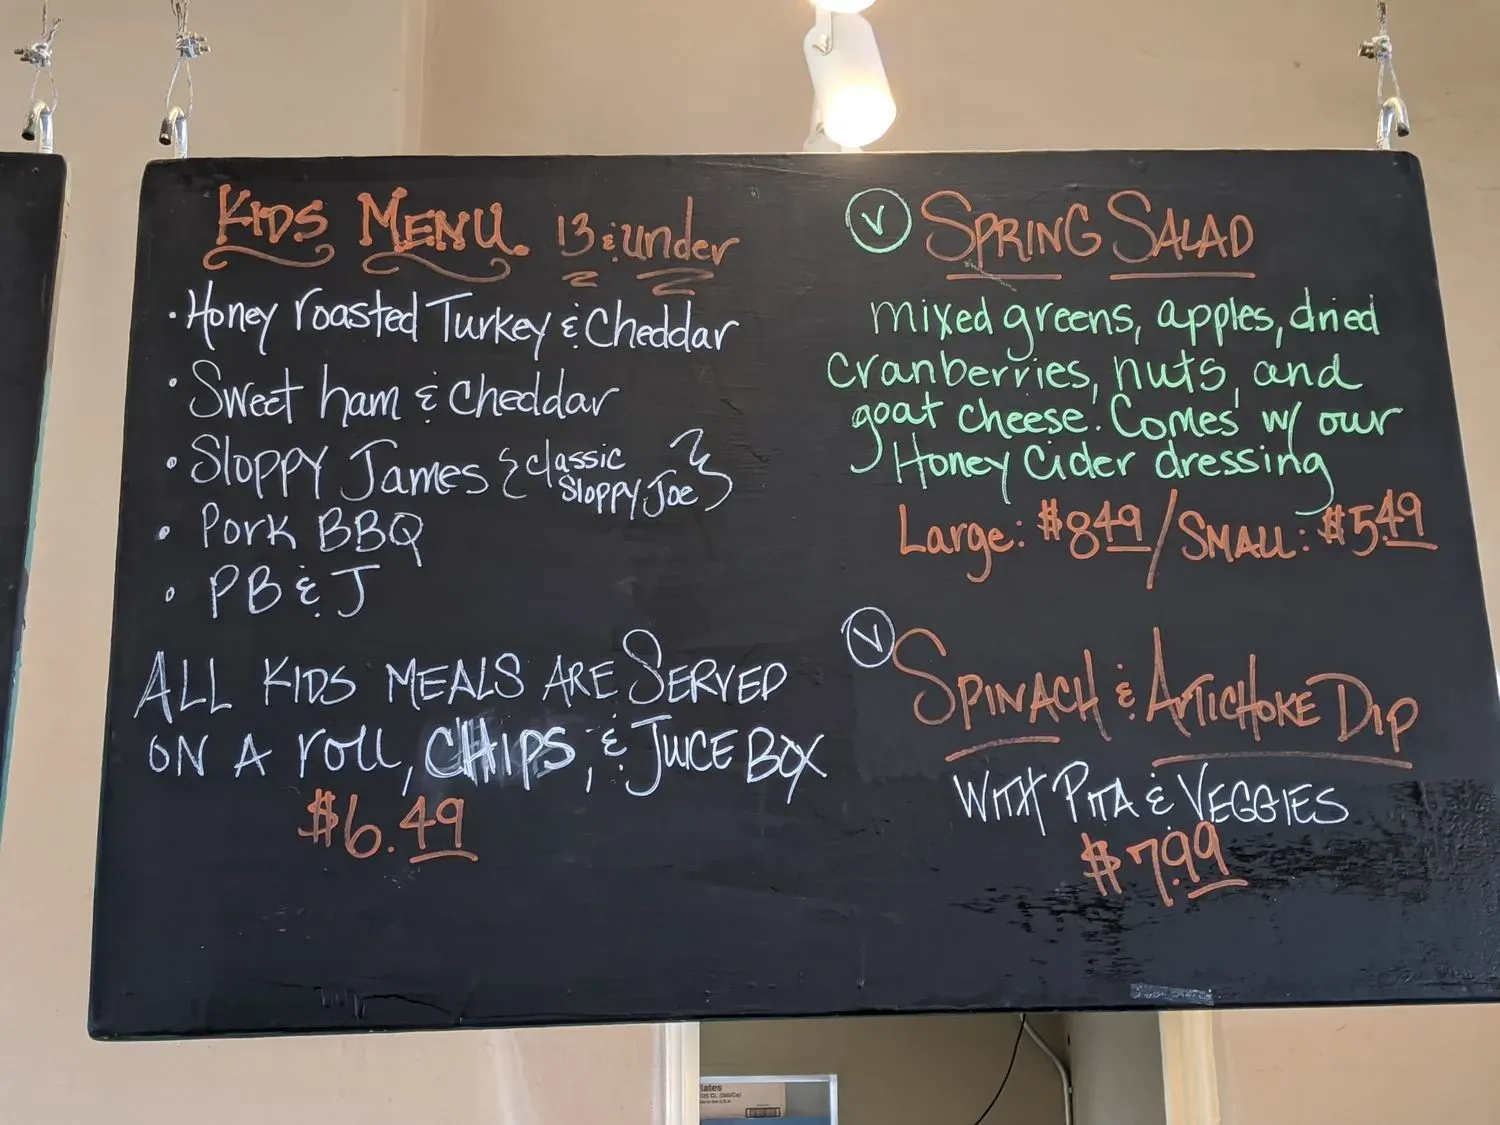 KIDS MENU 13 & under
• Honey roasted Turkey & Cheddar
• Sweet ham & Cheddar
• Sloppy James {classic
Sloppy Joe}
• Pork BBQ
• PB & J
ALL KIDS MEALS ARE SERVED
ON A roll, CHIPS, & JUICE BOX
$6.49
V SPRING SALAD
mixed greens, apples, dried
cranberries, nuts, and
goat cheese. Comes w/ our
Honey Cider dressing
Large: $8.49 / SMALL: $5.49
V SPINACH & ARTICHOKE DIP
WITH PITA & VEGGIES
$7.99
lates